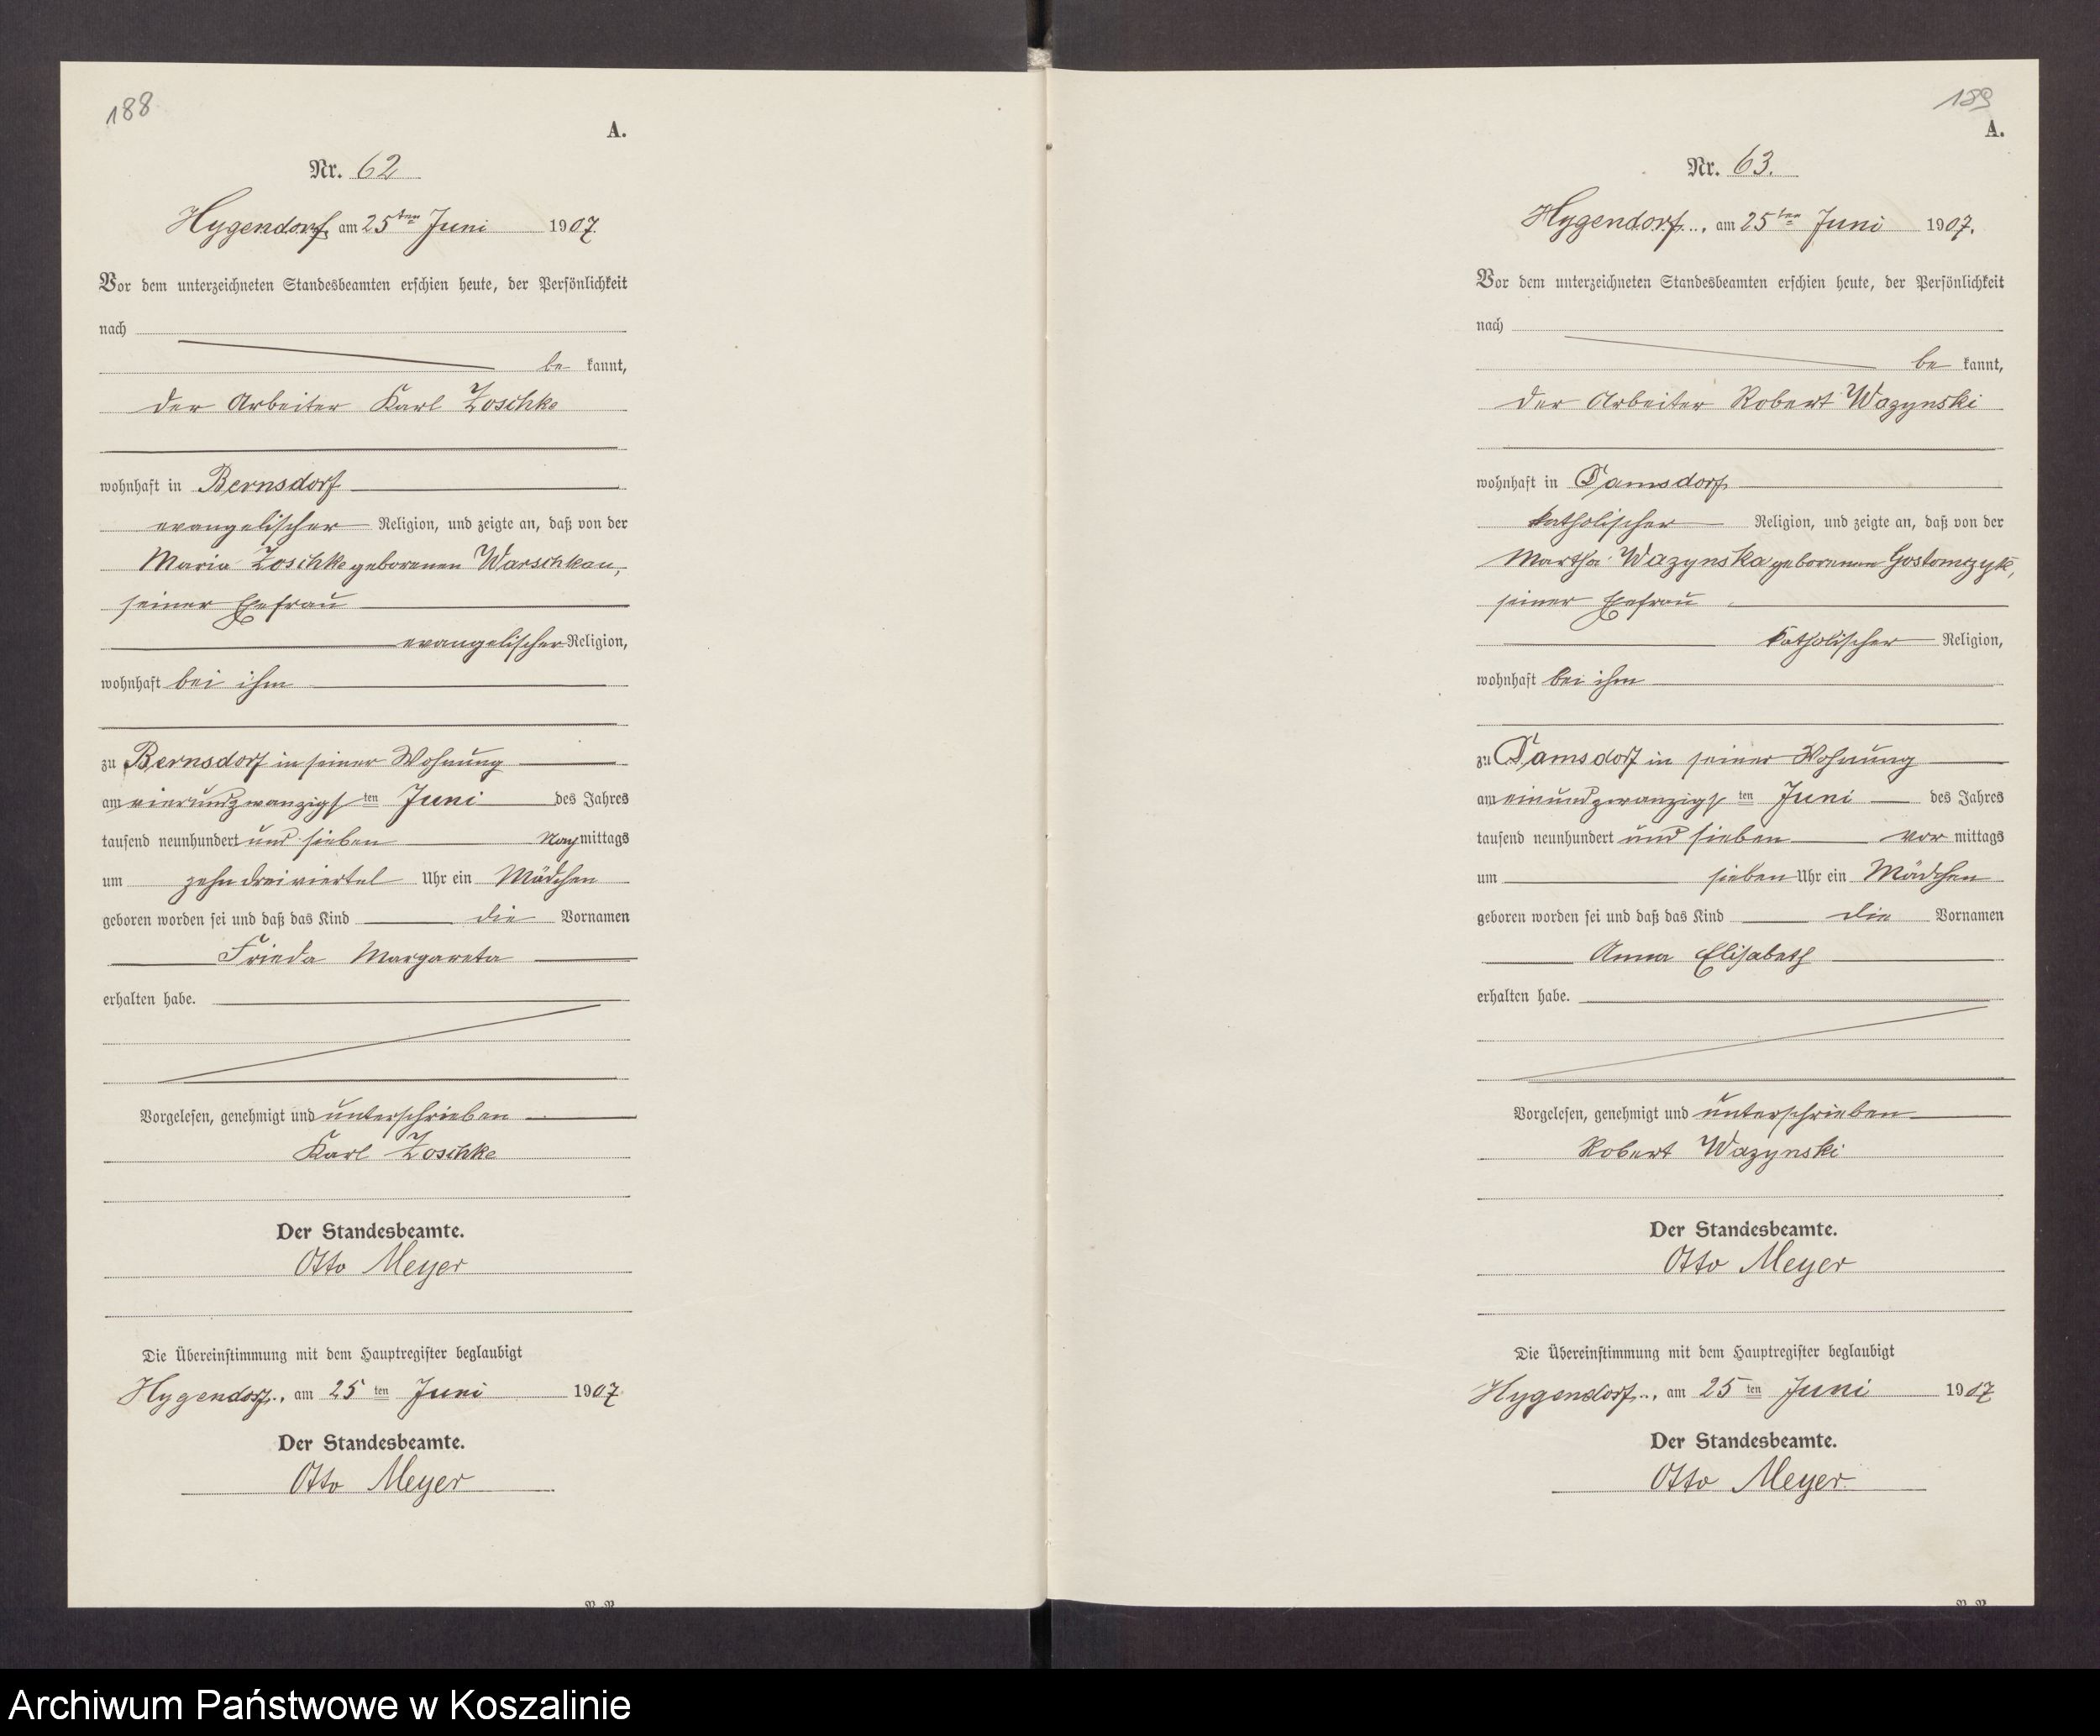 188
A.
Nr. 62
Hygendorf, am 25ten Juni 1907.
Vor dem unterzeichneten Standesbeamten erschien heute, der Persönlichkeit
nach
be kannt,
der Arbeiter Karl Zoschke
wohnhaft in Bernsdorf
evangelischer Religion, und zeigte an, daß von der
Maria Zoschke geborenen Warschkau,
seiner Ehefrau
evangelischer Religion,
wohnhaft bei ihm
zu Bernsdorf in seiner Wohnung
am vierundzwanzigsten Juni des Jahres
tausend neunhundert und sieben Nachmittags
um zehn dreiviertel Uhr ein Mädchen
geboren worden sei und daß das Kind die Vornamen
Frieda Margareta
erhalten habe.
Vorgelesen, genehmigt und unterschrieben
Karl Zoschke
Der Standesbeamte.
Otto Meyer
Die Übereinstimmung mit dem Hauptregister beglaubigt
Hygendorf, am 25 ten Juni 1907.
Der Standesbeamte.
Otto Meyer
189
A.
Nr. 63.
Hygendorf, am 25ten Juni 1907.
Vor dem unterzeichneten Standesbeamten erschien heute, der Persönlichkeit
nach
be kannt,
der Arbeiter Robert Wazynski
wohnhaft in Damsdorf
katholischer Religion, und zeigte an, daß von der
Martha Wazynska geborenen Gostomczyk,
seiner Ehefrau
katholischer Religion,
wohnhaft bei ihm
zu Damsdorf in seiner Wohnung
am einundzwanzigsten Juni des Jahres
tausend neunhundert und sieben vor mittags
um sieben Uhr ein Mädchen
geboren worden sei und daß das Kind die Vornamen
Anna Elisabeth
erhalten habe.
Vorgelesen, genehmigt und unterschrieben
Robert Wazynski
Der Standesbeamte.
Otto Meyer
Die Übereinstimmung mit dem Hauptregister beglaubigt
Hygendorf, am 25 ten Juni 1907
Der Standesbeamte.
Otto Meyer
Archiwum Państwowe w Koszalinie